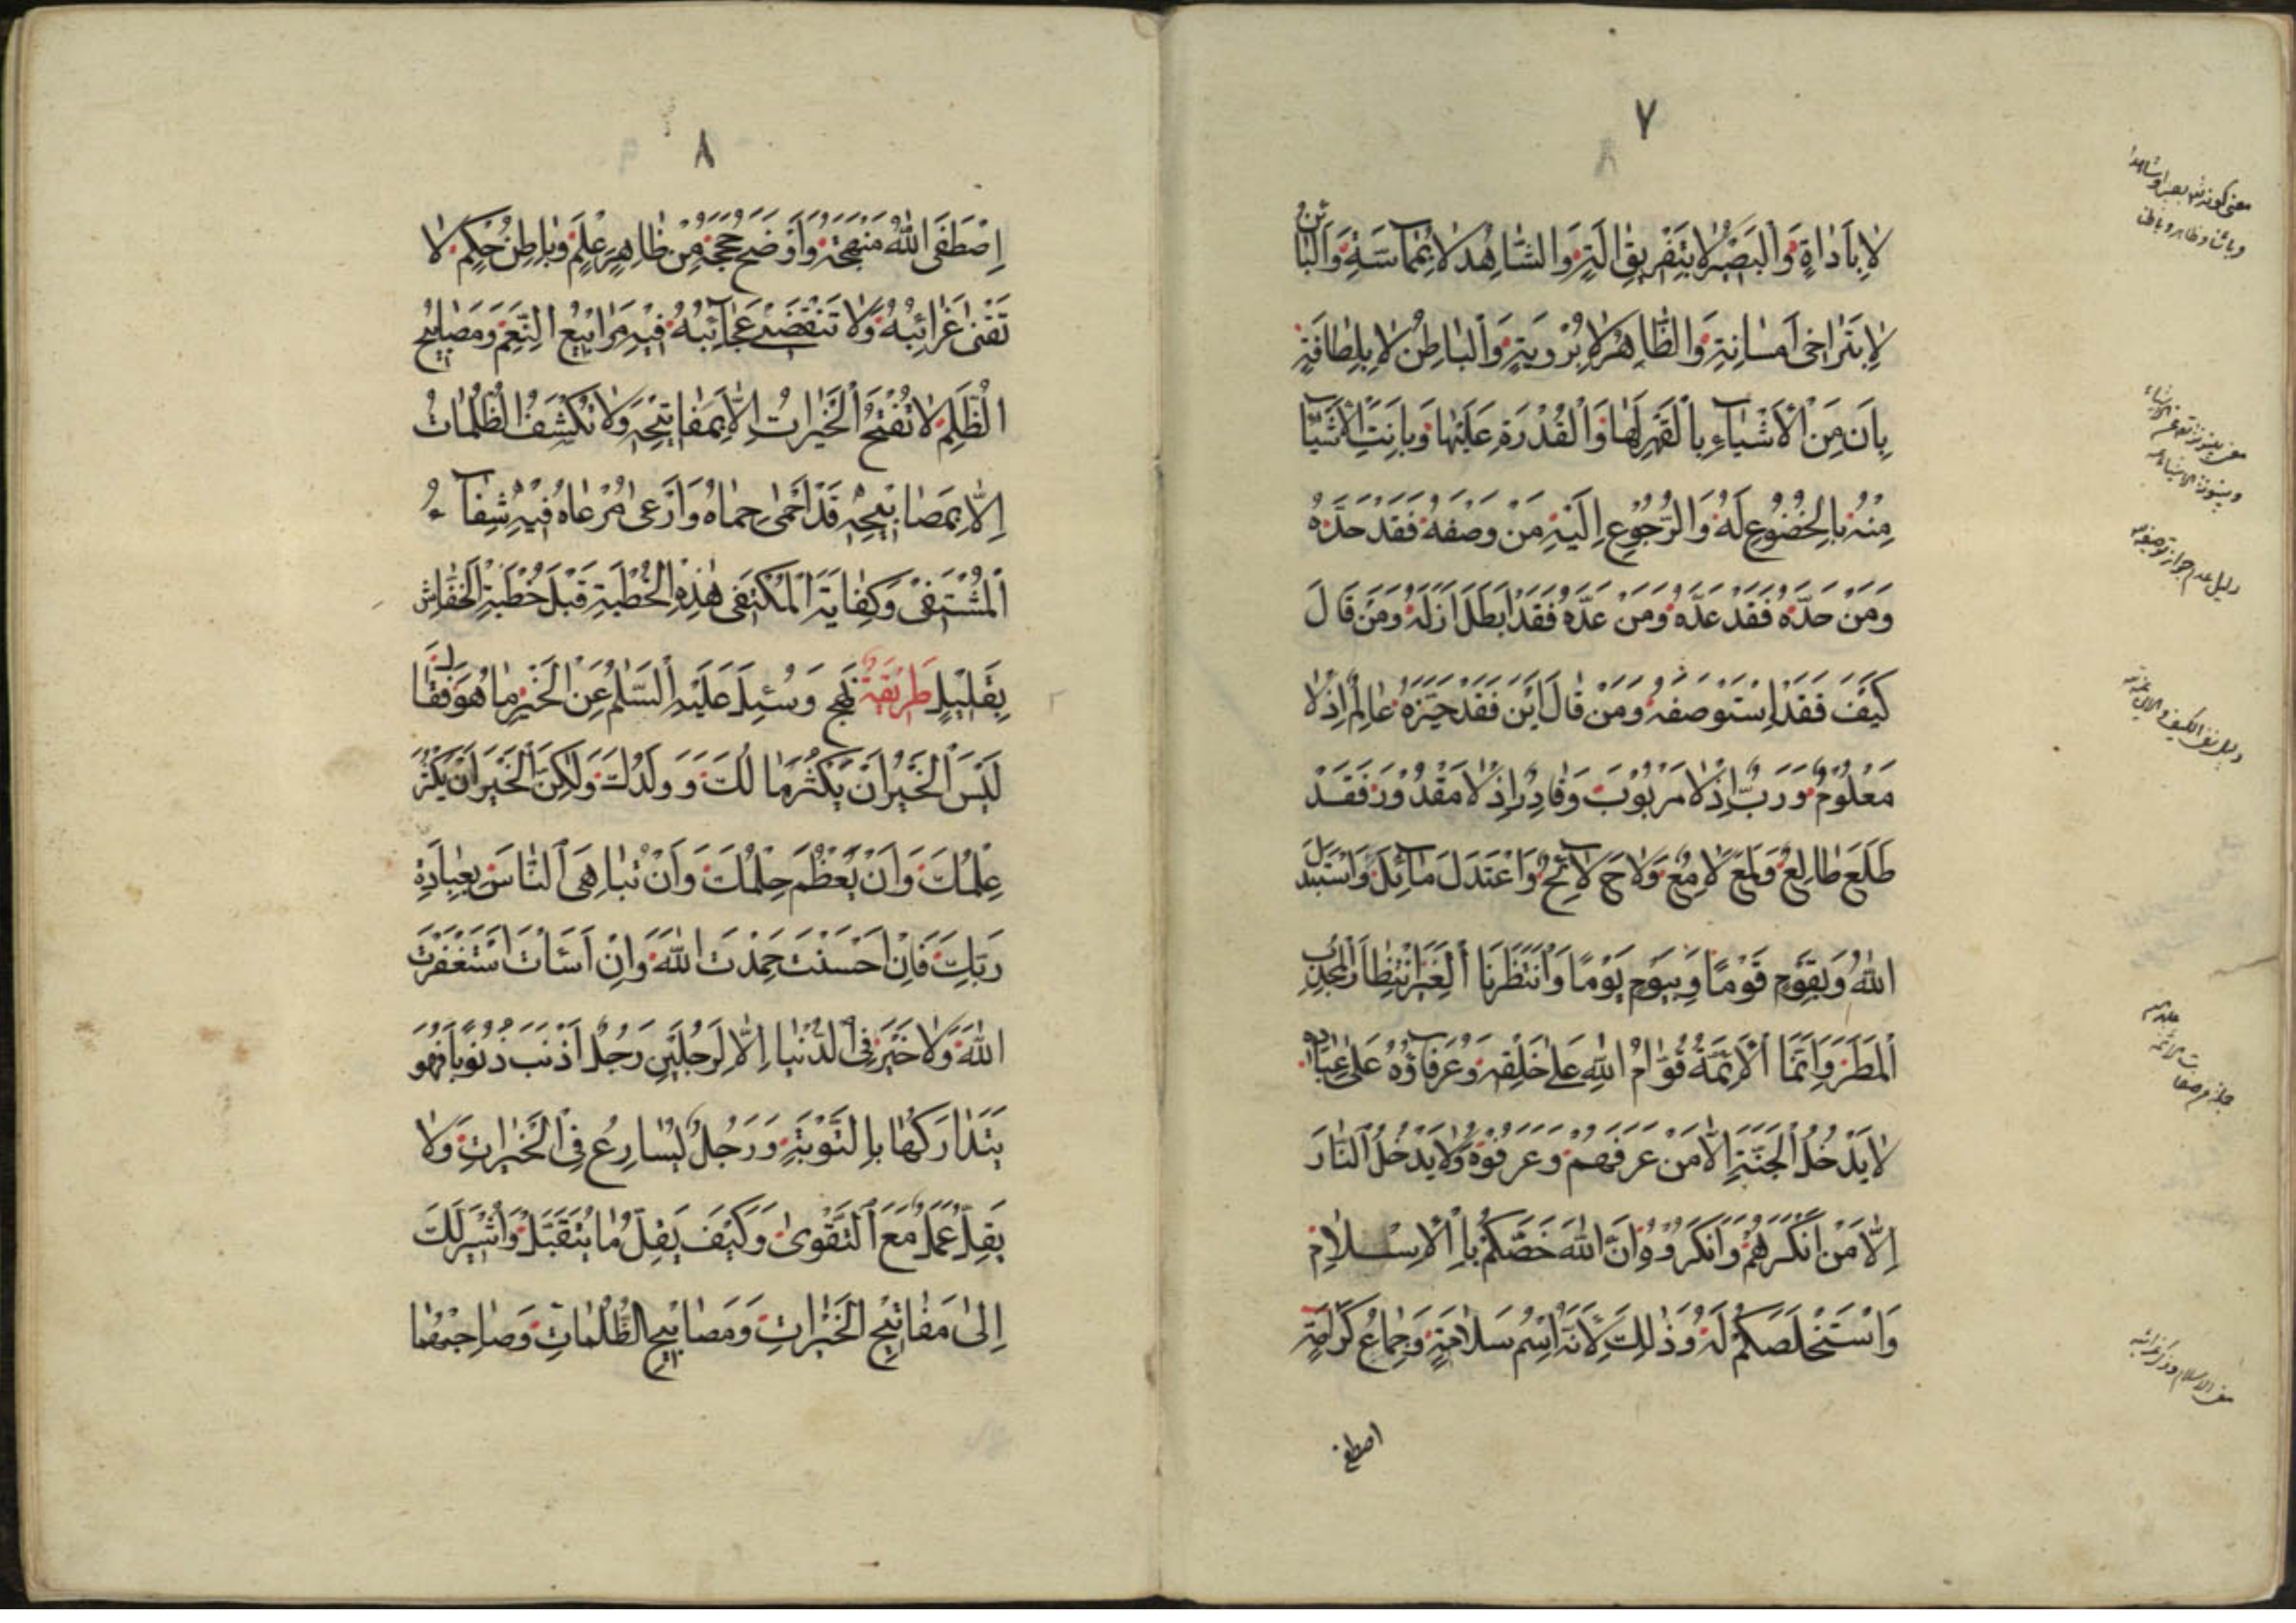 ٧
لَا بِأَدَاةٍ وَالْبَصِيرُ لَا بِتَفْرِيقِ آلَةٍ وَالشَّاهِدُ لَا بِمُمَاسَّةٍ وَالْبَائِنُ
لَا بِتَرَاخِي مَسَافَةٍ وَالظَّاهِرُ لَا بِرُؤْيَةٍ وَالْبَاطِنُ لَا بِلَطَافَةٍ
بَانَ مِنَ الْأَشْيَاءِ بِالْقَهْرِ لَهَا وَالْقُدْرَةِ عَلَيْهَا وَبَانَتِ الْأَشْيَاءُ
مِنْهُ بِالْخُضُوعِ لَهُ وَالرُّجُوعِ إِلَيْهِ مَنْ وَصَفَهُ فَقَدْ حَدَّهُ
وَمَنْ حَدَّهُ فَقَدْ عَدَّهُ وَمَنْ عَدَّهُ فَقَدْ أَبْطَلَ أَزَلَهُ وَمَنْ قَالَ
كَيْفَ فَقَدْ اِسْتَوْصَفَهُ وَمَنْ قَالَ أَيْنَ فَقَدْ حَيَّزَهُ عَالِمٌ إِذْ لَا
مَعْلُومٌ وَرَبٌّ إِذْ لَا مَرْبُوبَ وَقَادِرٌ إِذْ لَا مَقْدُورَ فَقَدْ
طَلَعَ طَالِعٌ وَلَمَعَ لَامِعٌ وَلَاحَ لَائِحٌ وَاعْتَدَلَ مَائِلٌ وَاسْتَبْدَلَ
اللهُ وَبِقَوْمٍ قَوْمًا وَبِيَوْمٍ يَوْمًا وَانْتَظَرْنَا الْغِيَرَ انْتِظَارَ الْمُجْدِبِ
الْمَطَرَ وَإِنَّمَا الْأَئِمَّةُ قُوَّامُ اللهِ عَلَى خَلْقِهِ وَعُرَفَاؤُهُ عَلَى عِبَادِهِ
لَا يَدْخُلُ الْجَنَّةَ إِلَّا مَنْ عَرَفَهُمْ وَعَرَفُوهُ وَلَا يَدْخُلُ النَّارَ
إِلَّا مَنْ أَنْكَرَهُمْ وَأَنْكَرُوهُ إِنَّ اللهَ خَصَّكُمْ بِالْإِسْلَامِ
وَاسْتَخْلَصَكُمْ لَهُ وَذَٰلِكَ لِأَنَّهُ اسْمُ سَلَامَةٍ وَجِمَاعُ كَرَامَةٍ
اصطفى
٨
اِصْطَفَى اللهُ مَنْهَجَهُ وَأَوْضَحَ حُجَجَهُ مِنْ ظَاهِرِ عِلْمٍ وَبَاطِنِ حِكَمٍ لَا
تَفْنَى غَرَائِبُهُ وَلَا تَنْقَضِي عَجَائِبُهُ فِيهِ مَرَابِيعُ النِّعَمِ وَمَصَابِيحُ
الظُّلَمِ لَا تُفْتَحُ الْخَيْرَاتُ إِلَّا بِمَفَاتِيحِهِ وَلَا تُكْشَفُ الظُّلُمَاتُ
إِلَّا بِمَصَابِيحِهِ قَدْ أَحْمَى حِمَاهُ وَأَرْعَى مَرْعَاهُ فِيهِ شِفَاءُ
الْمُشْتَفِي وَكِفَايَةُ الْمُكْتَفِي هٰذِهِ الْخُطْبَةِ قَبْلَ خُطْبَةِ الْخَفَّاشِ
بِقَلِيلٍ طَرِيقَةٌ نهج وَسُئِلَ عَلَيْهِ السَّلَامُ عَنِ الْخَيْرِ مَا هُوَ فَقَالَ
لَيْسَ الْخَيْرُ أَنْ يَكْثُرَ مَا لُكَ وَوَلَدُكَ وَلٰكِنَّ الْخَيْرَ أَنْ يَكْثُرَ
عِلْمُكَ وَأَنْ يُعَظَّمَ حِلْمُكَ وَأَنْ تُبَاهِيَ النَّاسَ بِعِبَادَةِ
رَبِّكَ فَإِنْ أَحْسَنْتَ حَمِدْتَ اللهَ وَإِنْ أَسَأْتَ اسْتَغْفَرْتَ
اللهَ وَلَا خَيْرَ فِي الدُّنْيَا إِلَّا لِرَجُلَيْنِ رَجُلٌ أَذْنَبَ ذُنُوبًا فَهُوَ
يَتَدَارَكُهَا بِالتَّوْبَةِ وَرَجُلٌ يُسَارِعُ فِي الْخَيْرَاتِ وَلَا
يَقِلُّ عَمَلٌ مَعَ التَّقْوَىٰ وَكَيْفَ يَقِلُّ مَا يُتَقَبَّلُ وَأُشِيرَ لَكَ
إِلَىٰ مَفَاتِيحِ الْخَيْرَاتِ وَمَصَابِيحِ الظُّلُمَاتِ وَصَاحِبَيْهِمَا